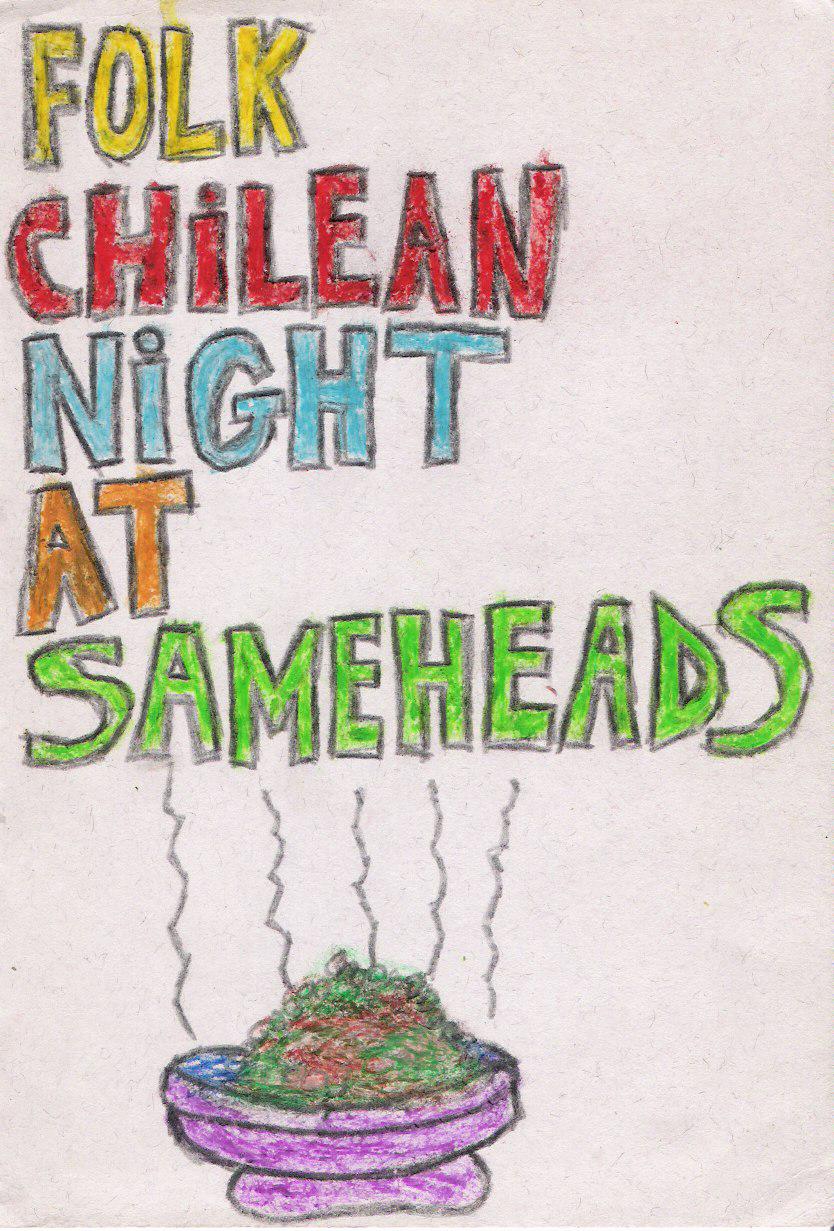 FOLK
CHiLEAN
NiGHT
AT
SAMEHEADS